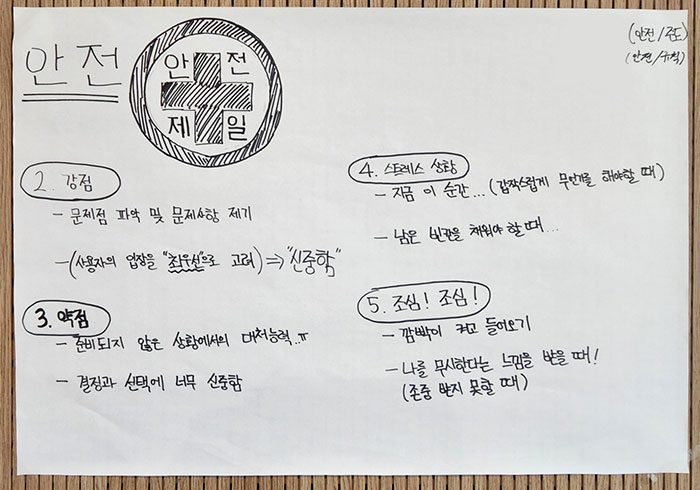 안전
안전
제일
(안전/점도)
(안전/규칙)
2. 강점
- 문제점 파악 및 문제사항 제기
- (사용자의 입장을 "최우선"으로 고려) ⇒ "신중함"
3. 약점
- 준비되지 않은 상황에서의 대처능력..ㅠ
- 결정과 선택에 너무 신중함
4. 스트레스 상황
- 지금 이 순간... (갑작스럽게 무언가를 해야할 때)
- 남은 빈칸을 채워야 할 때...
5. 조심! 조심!
- 깜빡이 켜고 들어오기
- 나를 무시한다는 느낌을 받을 때!
(존중 받지 못할 때)